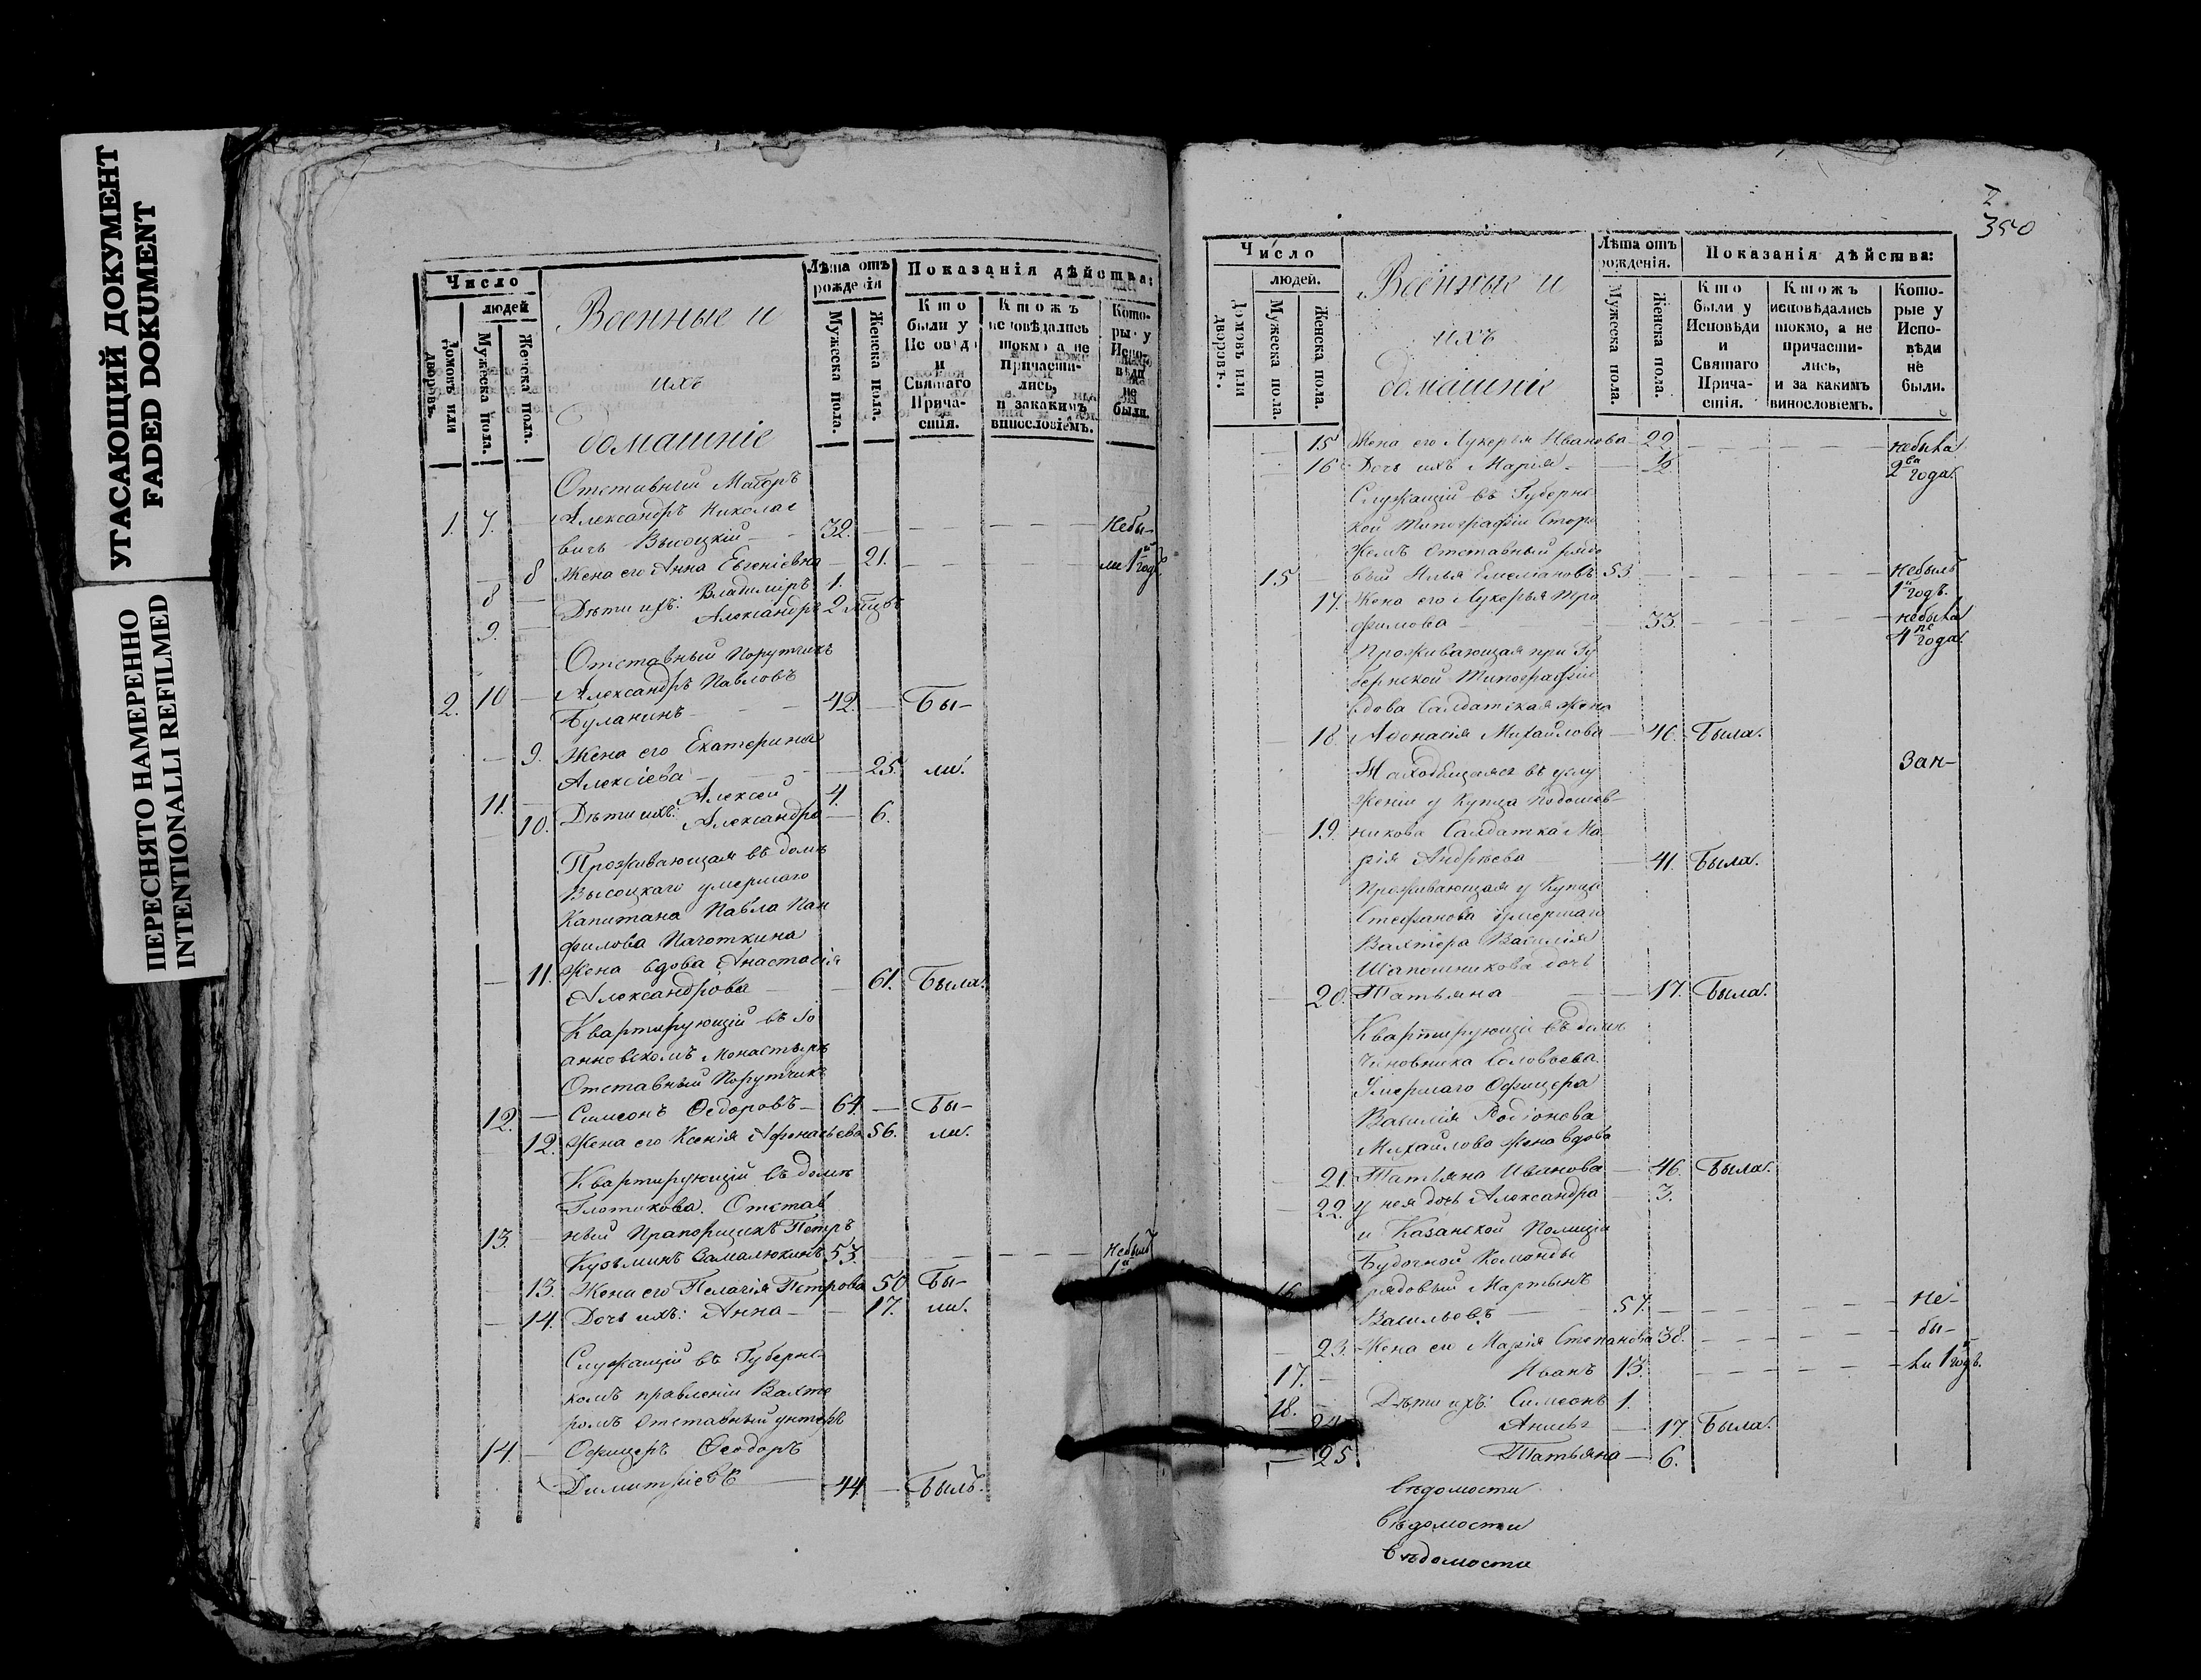 УГАСАЮЩИЙ ДОКУМЕНТ
FADED DOKUMENT
ПЕРЕСНЯТО НАМЕРЕННО
INTENTIONALLI REFILMED
Число
людей
Домовъ или дворовъ.
Мужеска пола.
Женска пола.
Военные и
ихъ
домашніе
Лѣта отъ рожденія
Мужеска пола.
Женска пола.
Показанія дѣйства:
Кто были у Исповѣди и Святаго Причастія.
Ктожъ исповѣдались токмо а не Причастились, и закакимъ винословіемъ.
Которы у Исповѣди не были.
Отставный Маіоръ
1. 7. — Александръ Николае
вичь Высоцкій — 32. — Небы-
— 8 Жена его Анна Евгеніевна — 21. — ли 1й годъ.
8 — Дѣти ихъ: Владиміръ 1.
9. — Александръ 2
Отставный Порутчикъ
2. 10 — Александръ Павловъ
Буланинъ — 42. — Бы-
— 9. Жена его Екатерина
Алексіева — 25. ли.
11. — Дѣти ихъ: Алексей 4.
— 10. Александра — 6.
Проживающая въ домѣ
Высоцкаго умершаго
Капитана Павла Пан
филова Пачоткина
— 11. Жена вдова Анастасія
Александрова — 61. Была.
Квартирующій въ Іо
анновскомъ Монастырѣ
Отставный Порутчикъ
12. — Симеонъ Ѳедоровъ — 64 — Бы-
12. Жена его Ксенія Афонасьева 56. ли.
Квартирующій въ домѣ
Плотикова. Отстав
13. — ный Прапорщикъ Петръ
Кузьминъ Самалюкинъ 53. — Небылъ
— 13. Жена его Пелагія Петрова 50 Бы-
— 14. Дочь ихъ: Анна — — 17. ли.
Служащій въ Губернс
комъ правленіи Вахте
ромъ Отставный унтеръ
14. — Офицеръ Ѳеодоръ
Димитріевъ — 44 — Былъ.
350
Число
людей.
Домовъ или дворовъ.
Мужеска пола.
Женска пола.
Военные и
ихъ
домашніе
Лѣта отъ рожденія.
Мужеска пола.
Женска пола.
Показанія дѣйства:
Кто были у Исповѣди и Святаго Причастія.
Ктожъ исповѣдались токмо, а не причастились, и за какимъ винословіемъ.
Которые у Исповѣди не были.
— 15 Жена его Лукерья Иванова — 22 — небыла
— 16 Дочь ихъ Марія — ½ 2ва года.
Служащій въ Губернс
кой Типографіи Сторо
жемъ Отставный рядо
15 — вый Илья Емельяновъ 53 — небылъ
17. Жена его Лукерья Тро 1й годъ.
фимова — 33. — небыла
Проживающая при Гу 4ре года.
бернской Типографіи
вдова Салдатская жена
— 18. Афонасія Михайлова — 46. Была.
Находящаяся въ услу Зан-
женіи у Купца Подошев-
— 19. никова Салдатка Ма
рія Андрѣева — 41. Была.
Проживающая у Купца
Стефанова умершаго
Вахтера Василія
Шапошникова дочь
— 20. Татьяна — 17. Была.
Квартирующіе въ домѣ
Чиновника Соловьева
Умершаго Офицера
Василія Родіонова
Михайлова жена вдова
— 21. Татьяна Иванова — 46. Была.
— 22. у нея дочь Александра — 3.
и Казанской Полиціи
Будочной Команды
16. рядовый Мартынъ
Васильевъ — 57. — Не-
— 23. Жена его Марія Степанова 38. — бы-
17. — Иванъ 13. — ли 1й годъ.
18. — Дѣти ихъ: Симеонъ 1.
— 24. — 17. Была.
— 25 Татьяна — 6.
вѣдомости
вѣдомости
вѣдомости